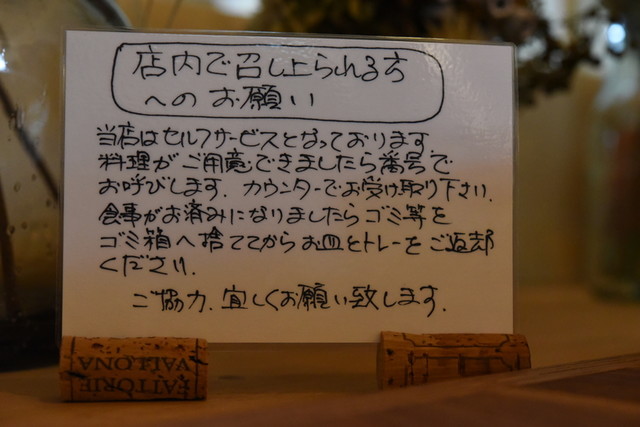 店内で召し上られる方
へのお願い
当店はセルフサービスとなっております
料理がご用意できましたら番号で
お呼びします. カウンターでお受け取り下さい.
食事がお済みになりましたらゴミ等を
ゴミ箱へ捨ててからお皿とトレーをご返却
ください.
ご協力. 宜しくお願い致します.
FATTORIE
VALLONA